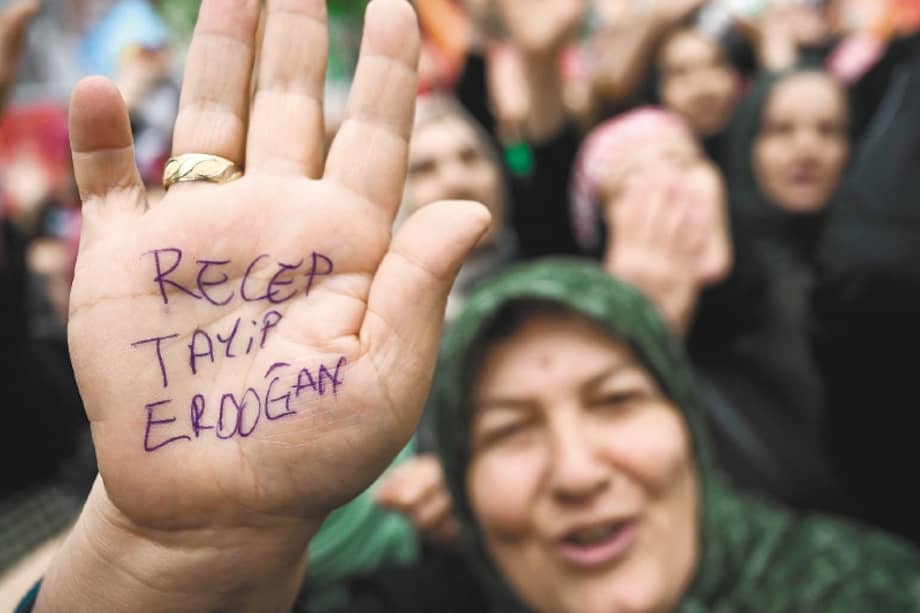 RECEP
TAYİP
ERDOĞAN